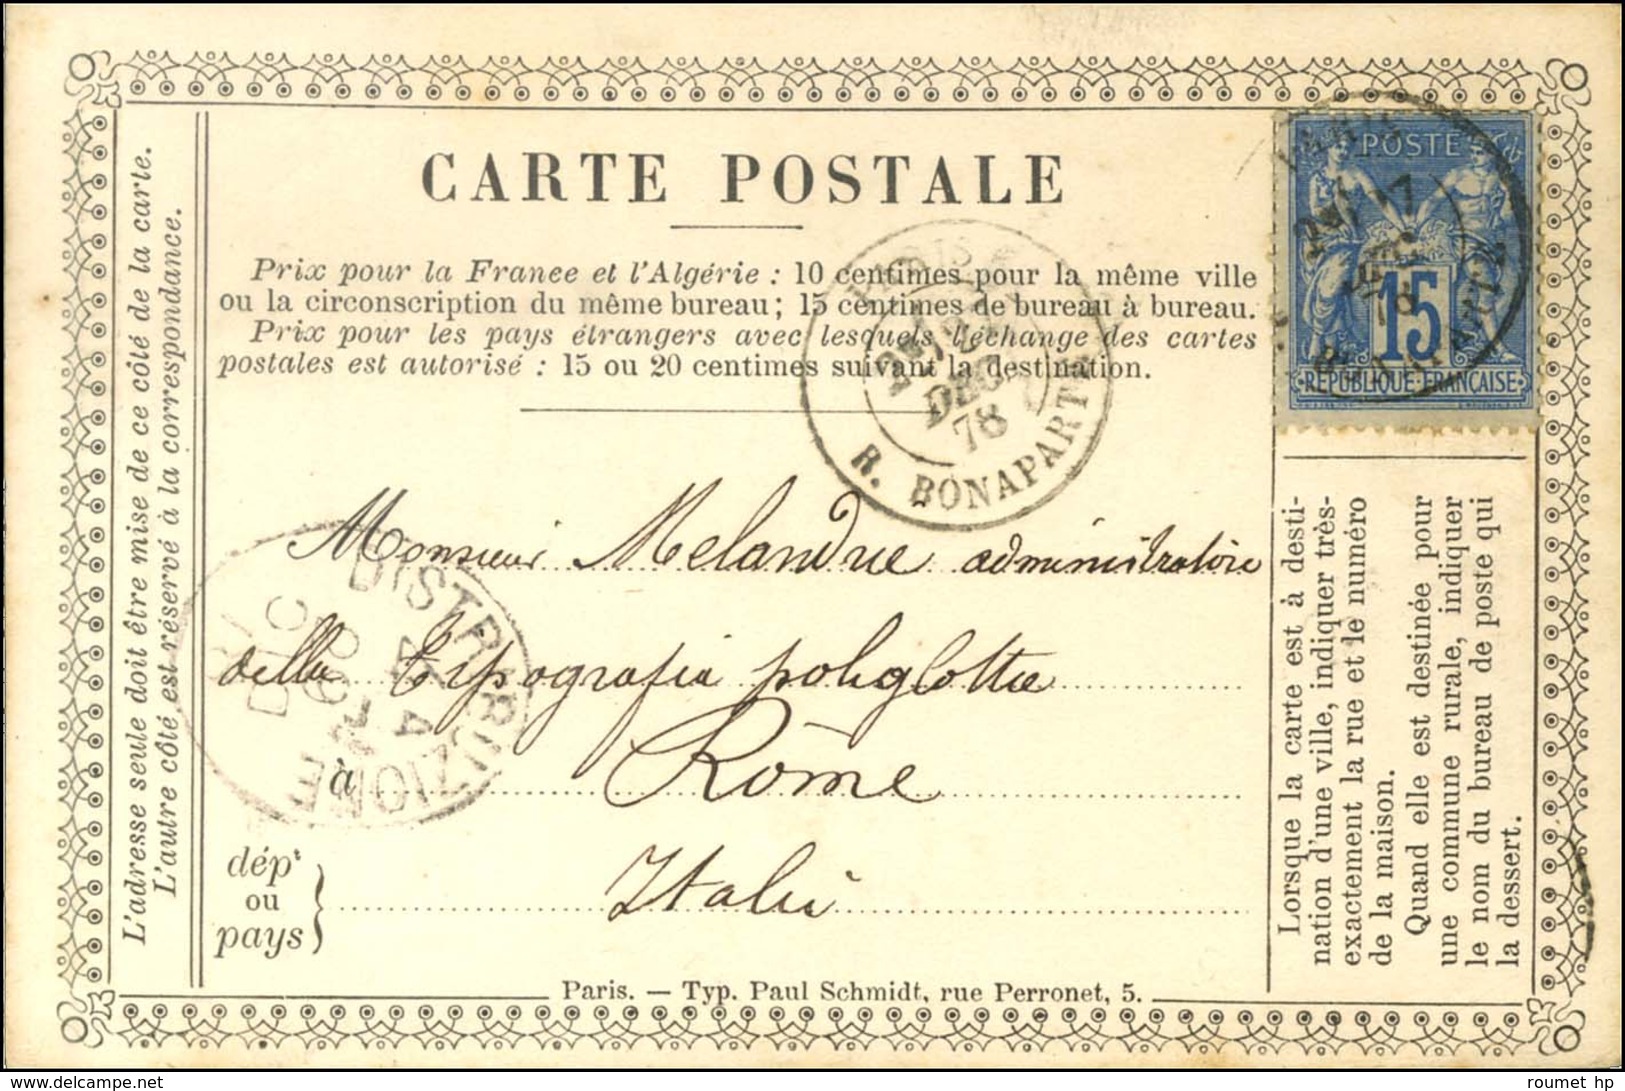 CARTE POSTALE
Prix pour la France et l'Algérie : 10 centimes pour la même ville
ou la circonscription du même bureau ; 15 centimes de bureau à bureau.
Prix pour les pays étrangers avec lesquels l'échange des cartes
postales est autorisé : 15 ou 20 centimes suivant la destination.
L'adresse seule doit être mise de ce côté de la carte.
L'autre côté est réservé à la correspondance.
POSTE
15
REPUBLIQUE FRANÇAISE
PARIS
DEC
78
R. BONAPARTE
Monsieur Melandre administratore
della Tipografia poliglotta
à Rome
dépt
ou
pays
Italie
DISTRIBUZIONE
Lorsque la carte est à desti-
nation d'une ville, indiquer très-
exactement la rue et le numéro
de la maison.
Quand elle est destinée pour
une commune rurale, indiquer
le nom du bureau de poste qui
la dessert.
Paris. — Typ. Paul Schmidt, rue Perronet, 5.
www.delcampe.net
roumet hp